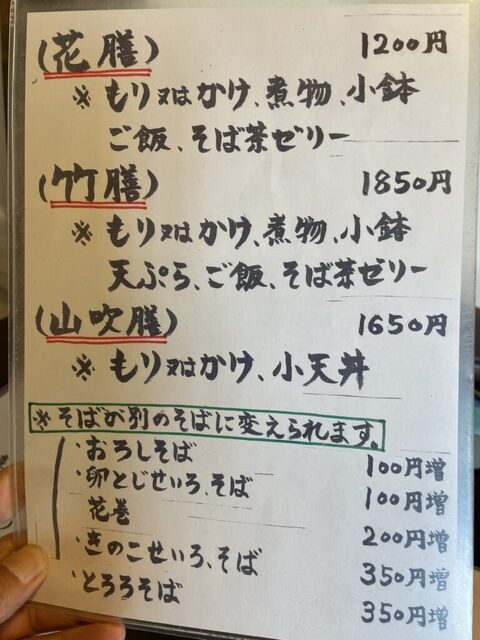 (花膳) 1200円
※もり又はかけ、煮物、小鉢
ご飯、そば茶ゼリー
(竹膳) 1850円
※もり又はかけ、煮物、小鉢
天ぷら、ご飯、そば茶ゼリー
(山吹膳) 1650円
※もり又はかけ、小天丼
※そばが別のそばに変えられます。
・おろしそば 100円増
・卵とじせいろ、そば 100円増
花巻 200円増
・きのこせいろ、そば 350円増
・とろろそば 350円増